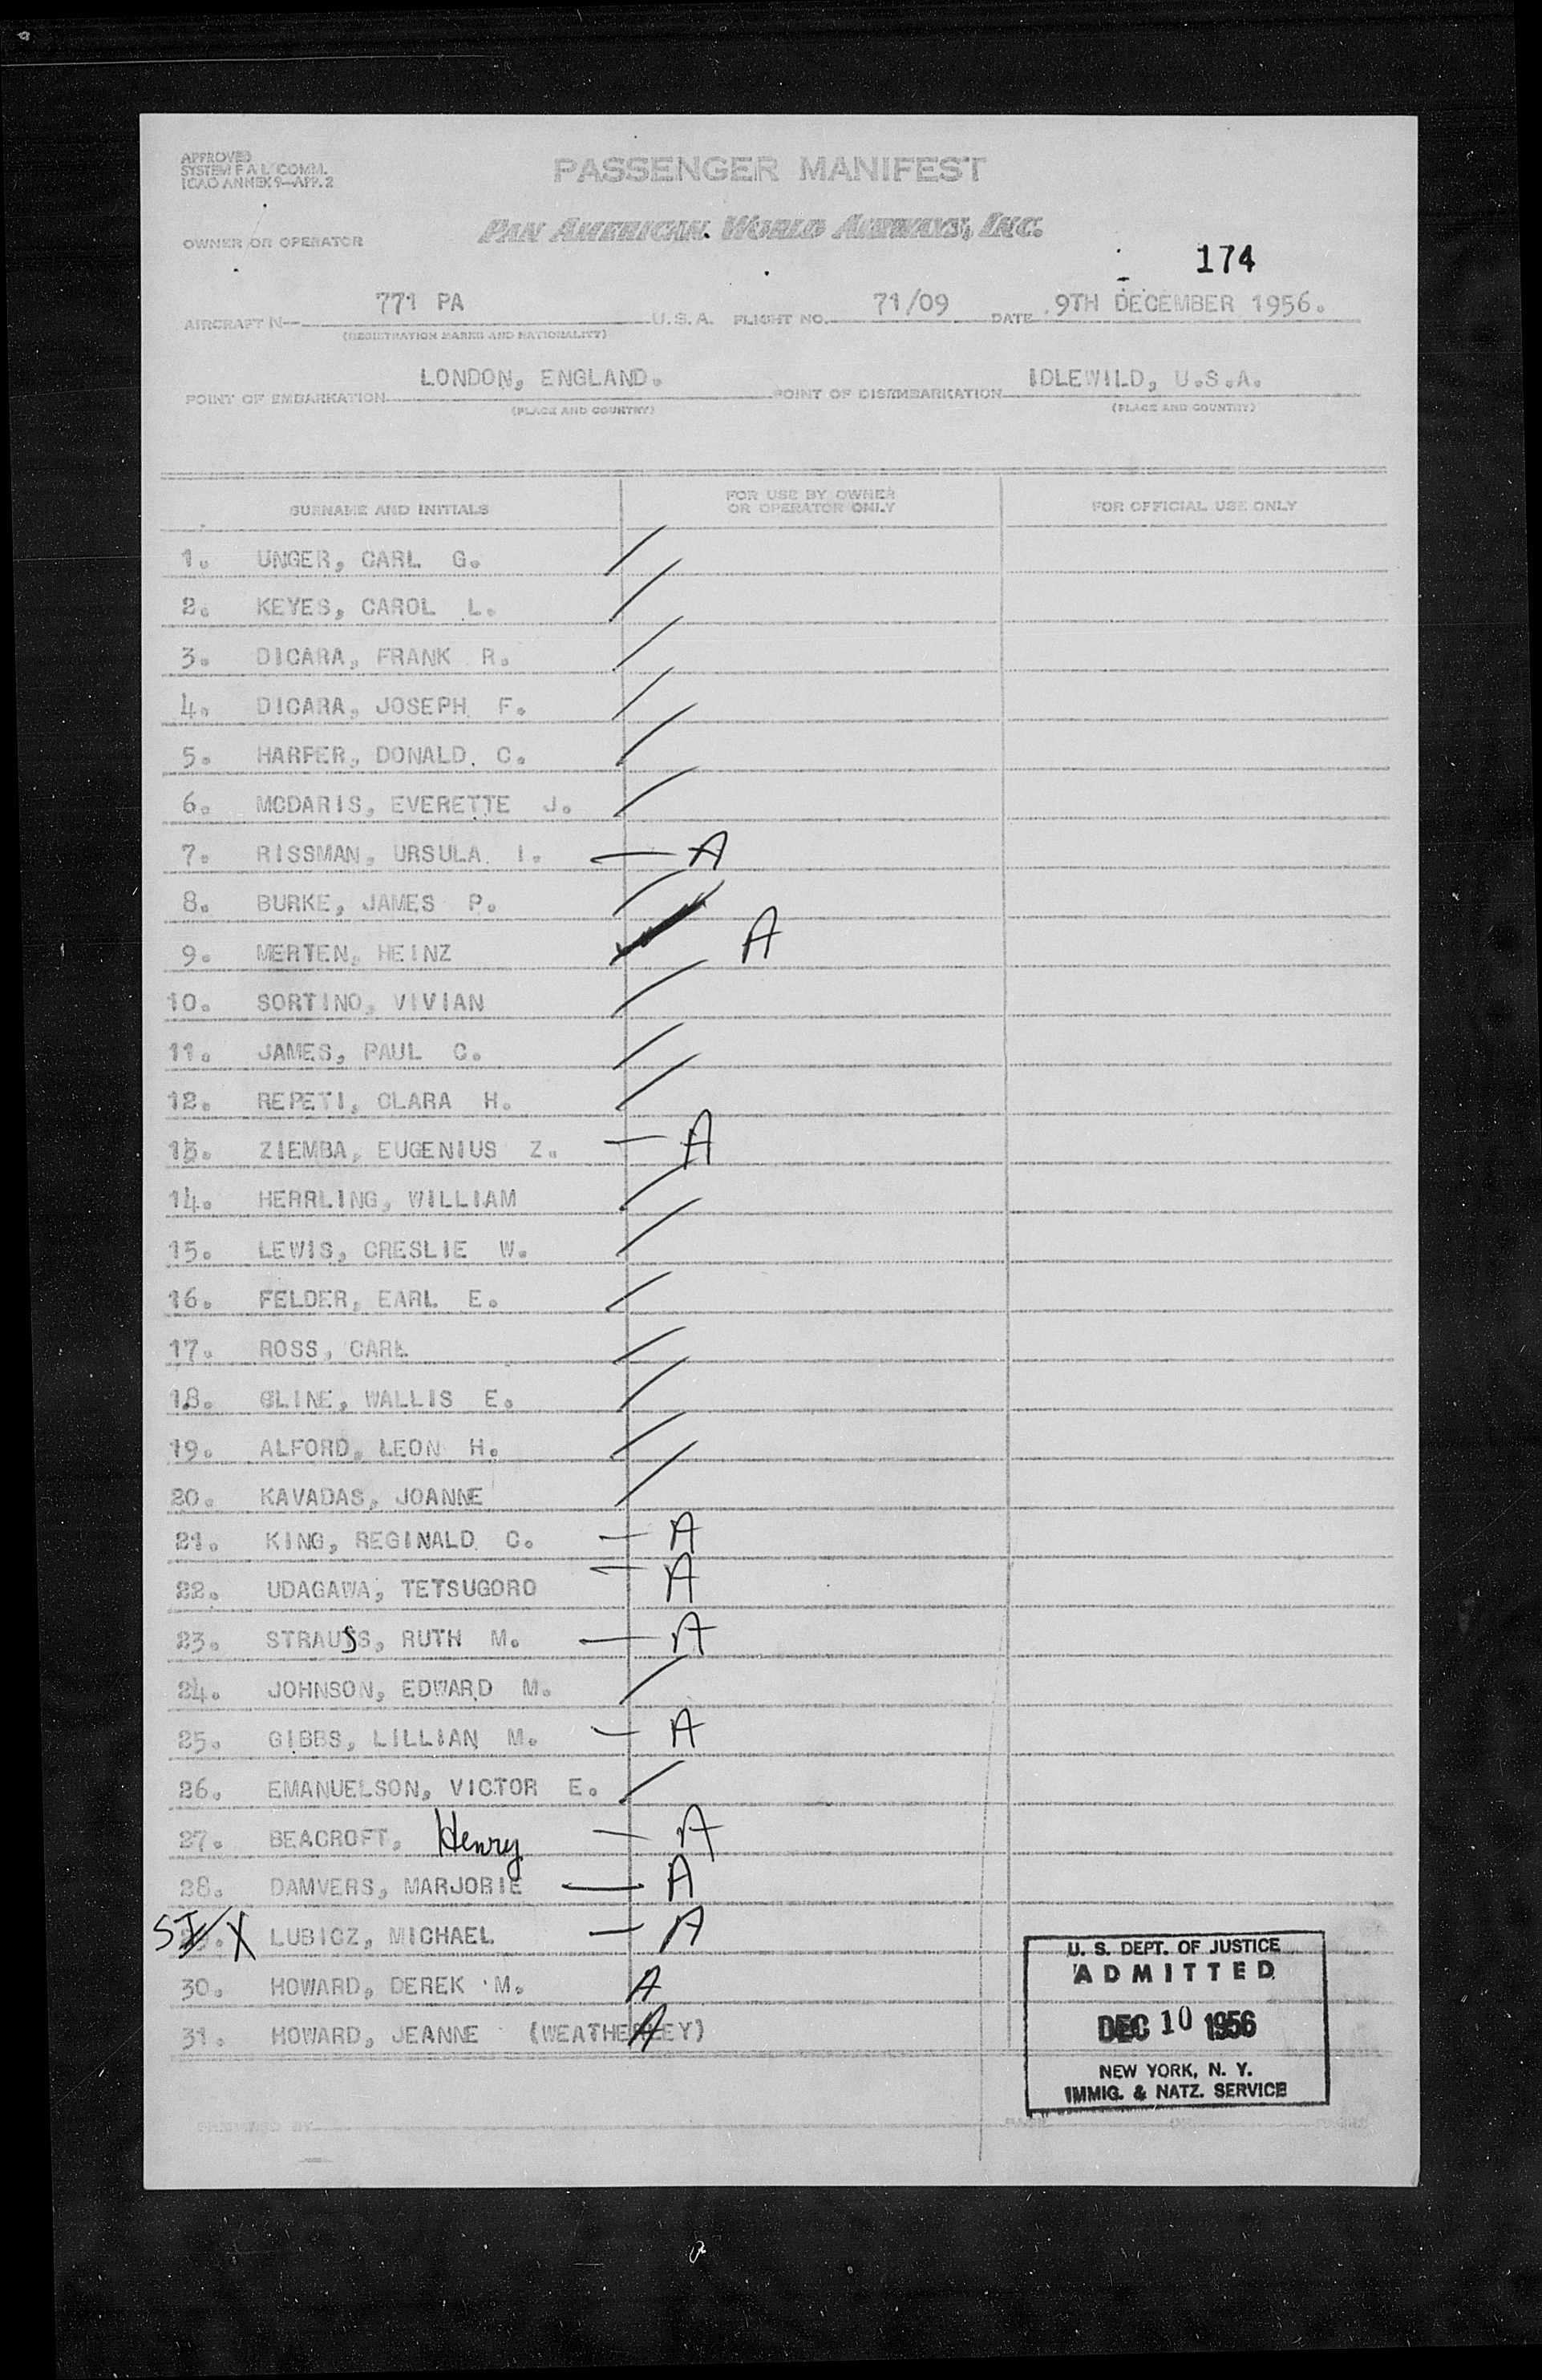 APPROVED
SYSTEM F A L COMM.
ICAO ANNEX 9—APP. 2
PASSENGER MANIFEST
PAN AMERICAN WORLD AIRWAYS, INC.
OWNER OR OPERATOR
174
AIRCRAFT N— 771 PA U.S.A. FLIGHT NO. 71/09 DATE 9TH DECEMBER 1956.
(REGISTRATION MARKS AND NATIONALITY)
POINT OF EMBARKATION LONDON, ENGLAND. POINT OF DISEMBARKATION IDLEWILD, U.S.A.
(PLACE AND COUNTRY) (PLACE AND COUNTRY)
SURNAME AND INITIALS FOR USE BY OWNER OR OPERATOR ONLY FOR OFFICIAL USE ONLY
1. UNGER, CARL G. /
2. KEYES, CAROL L. /
3. DICARA, FRANK R. /
4. DICARA, JOSEPH F. /
5. HARPER, DONALD C. /
6. MCDARIS, EVERETTE J. /
7. RISSMAN, URSULA I. — A
8. BURKE, JAMES P. /
9. MERTEN, HEINZ A
10. SORTINO, VIVIAN /
11. JAMES, PAUL C. /
12. REPETI, CLARA H. /
13. ZIEMBA, EUGENIUS Z. — A
14. HERRLING, WILLIAM /
15. LEWIS, CRESLIE W. /
16. FELDER, EARL E. /
17. ROSS, CARL /
18. CLINE, WALLIS E. /
19. ALFORD, LEON H. /
20. KAVADAS, JOANNE /
21. KING, REGINALD C. — A
22. UDAGAWA, TETSUGORO — A
23. STRAUSS, RUTH M. — A
24. JOHNSON, EDWARD M. /
25. GIBBS, LILLIAN M. — A
26. EMANUELSON, VICTOR E. /
27. BEACROFT, Henry — A
28. DAMVERS, MARJORIE — A
SI X LUBICZ, MICHAEL — A
30. HOWARD, DEREK M. A
31. HOWARD, JEANNE (WEATHERLEY) A
U. S. DEPT. OF JUSTICE
ADMITTED
DEC 10 1956
NEW YORK, N. Y.
IMMIG. & NATZ. SERVICE
PREPARED BY